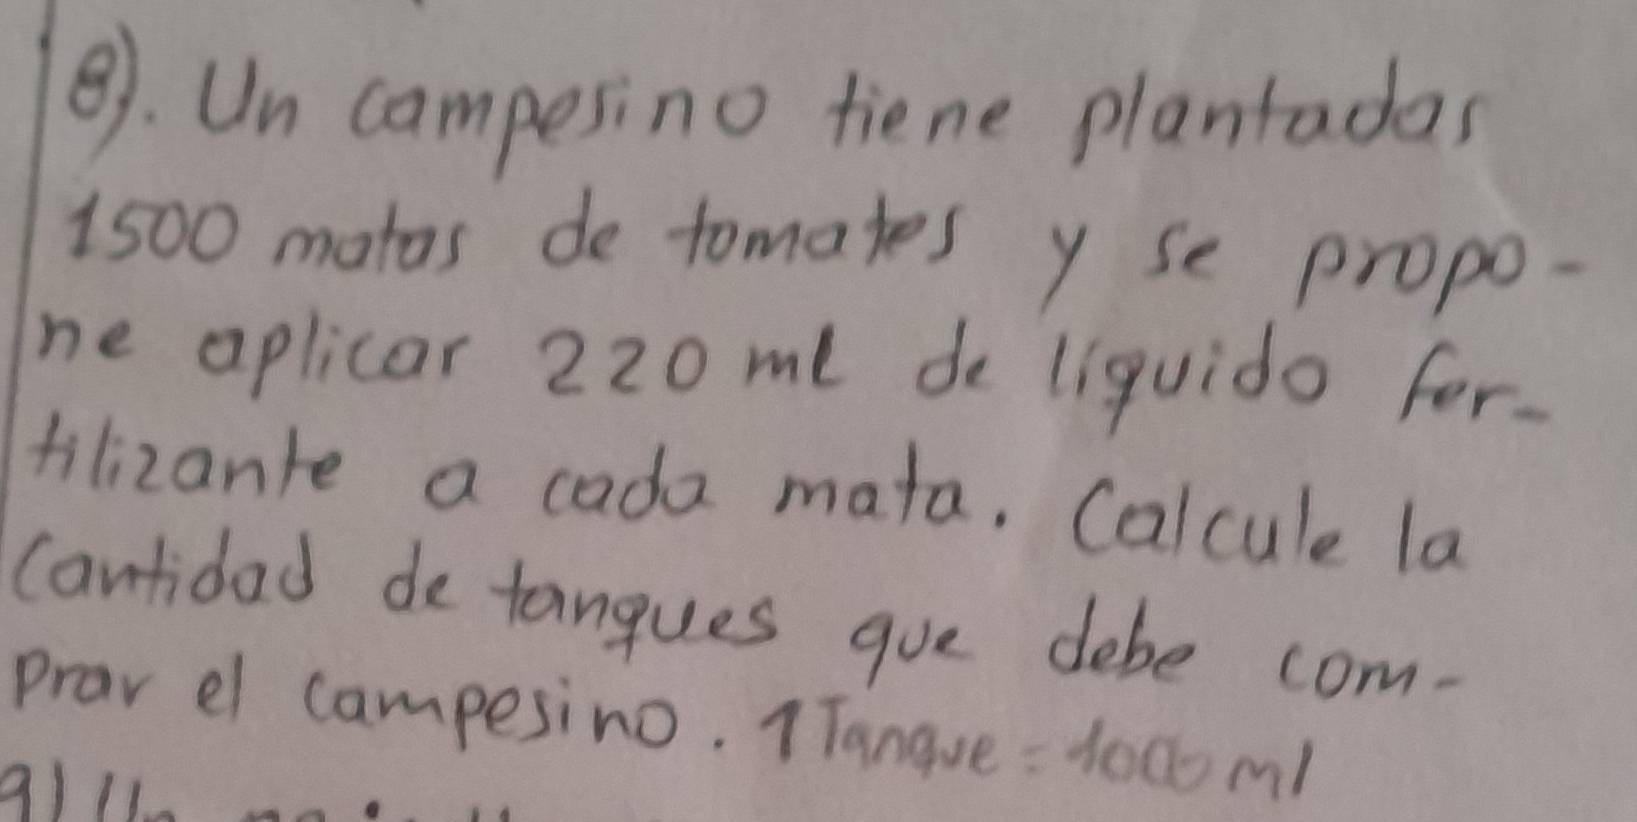 8). Un campesino tiene plantadas
1500 matas de tomates y se propo-
ne aplicar 220 ml de liquido fer-
tilizante a cada mata. Calcule la
cantidad de tanques que debe com-
prar el campesino. 1 Tanque = 1000 ml
9) Un